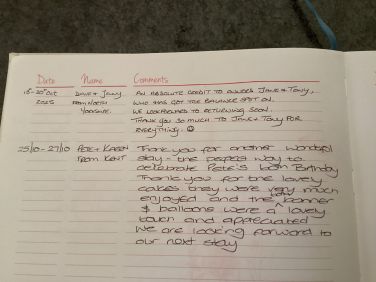 Date Name Comments
18-20th Oct Dave & Jenny AN ABSOLUTE CREDIT TO OWNERS JANE & TONY,
2025 FROM NORTH WHO HAS GOT THE BALANCE SPOT ON.
YORKSHIRE. WE LOOK FORWARD TO RETURNING SOON.
THANK YOU SO MUCH TO JANE & TONY FOR
EVERYTHING. ☺
25/10 - 27/10 Pete & Karen Thank you for another wonderful
From Kent stay - the perfect way to
celebrate Pete's Birthday
Thank you for the lovely
cakes they were very much
enjoyed and the banner
& balloons were a lovely
touch and appreciated
We are looking forward to
our next stay